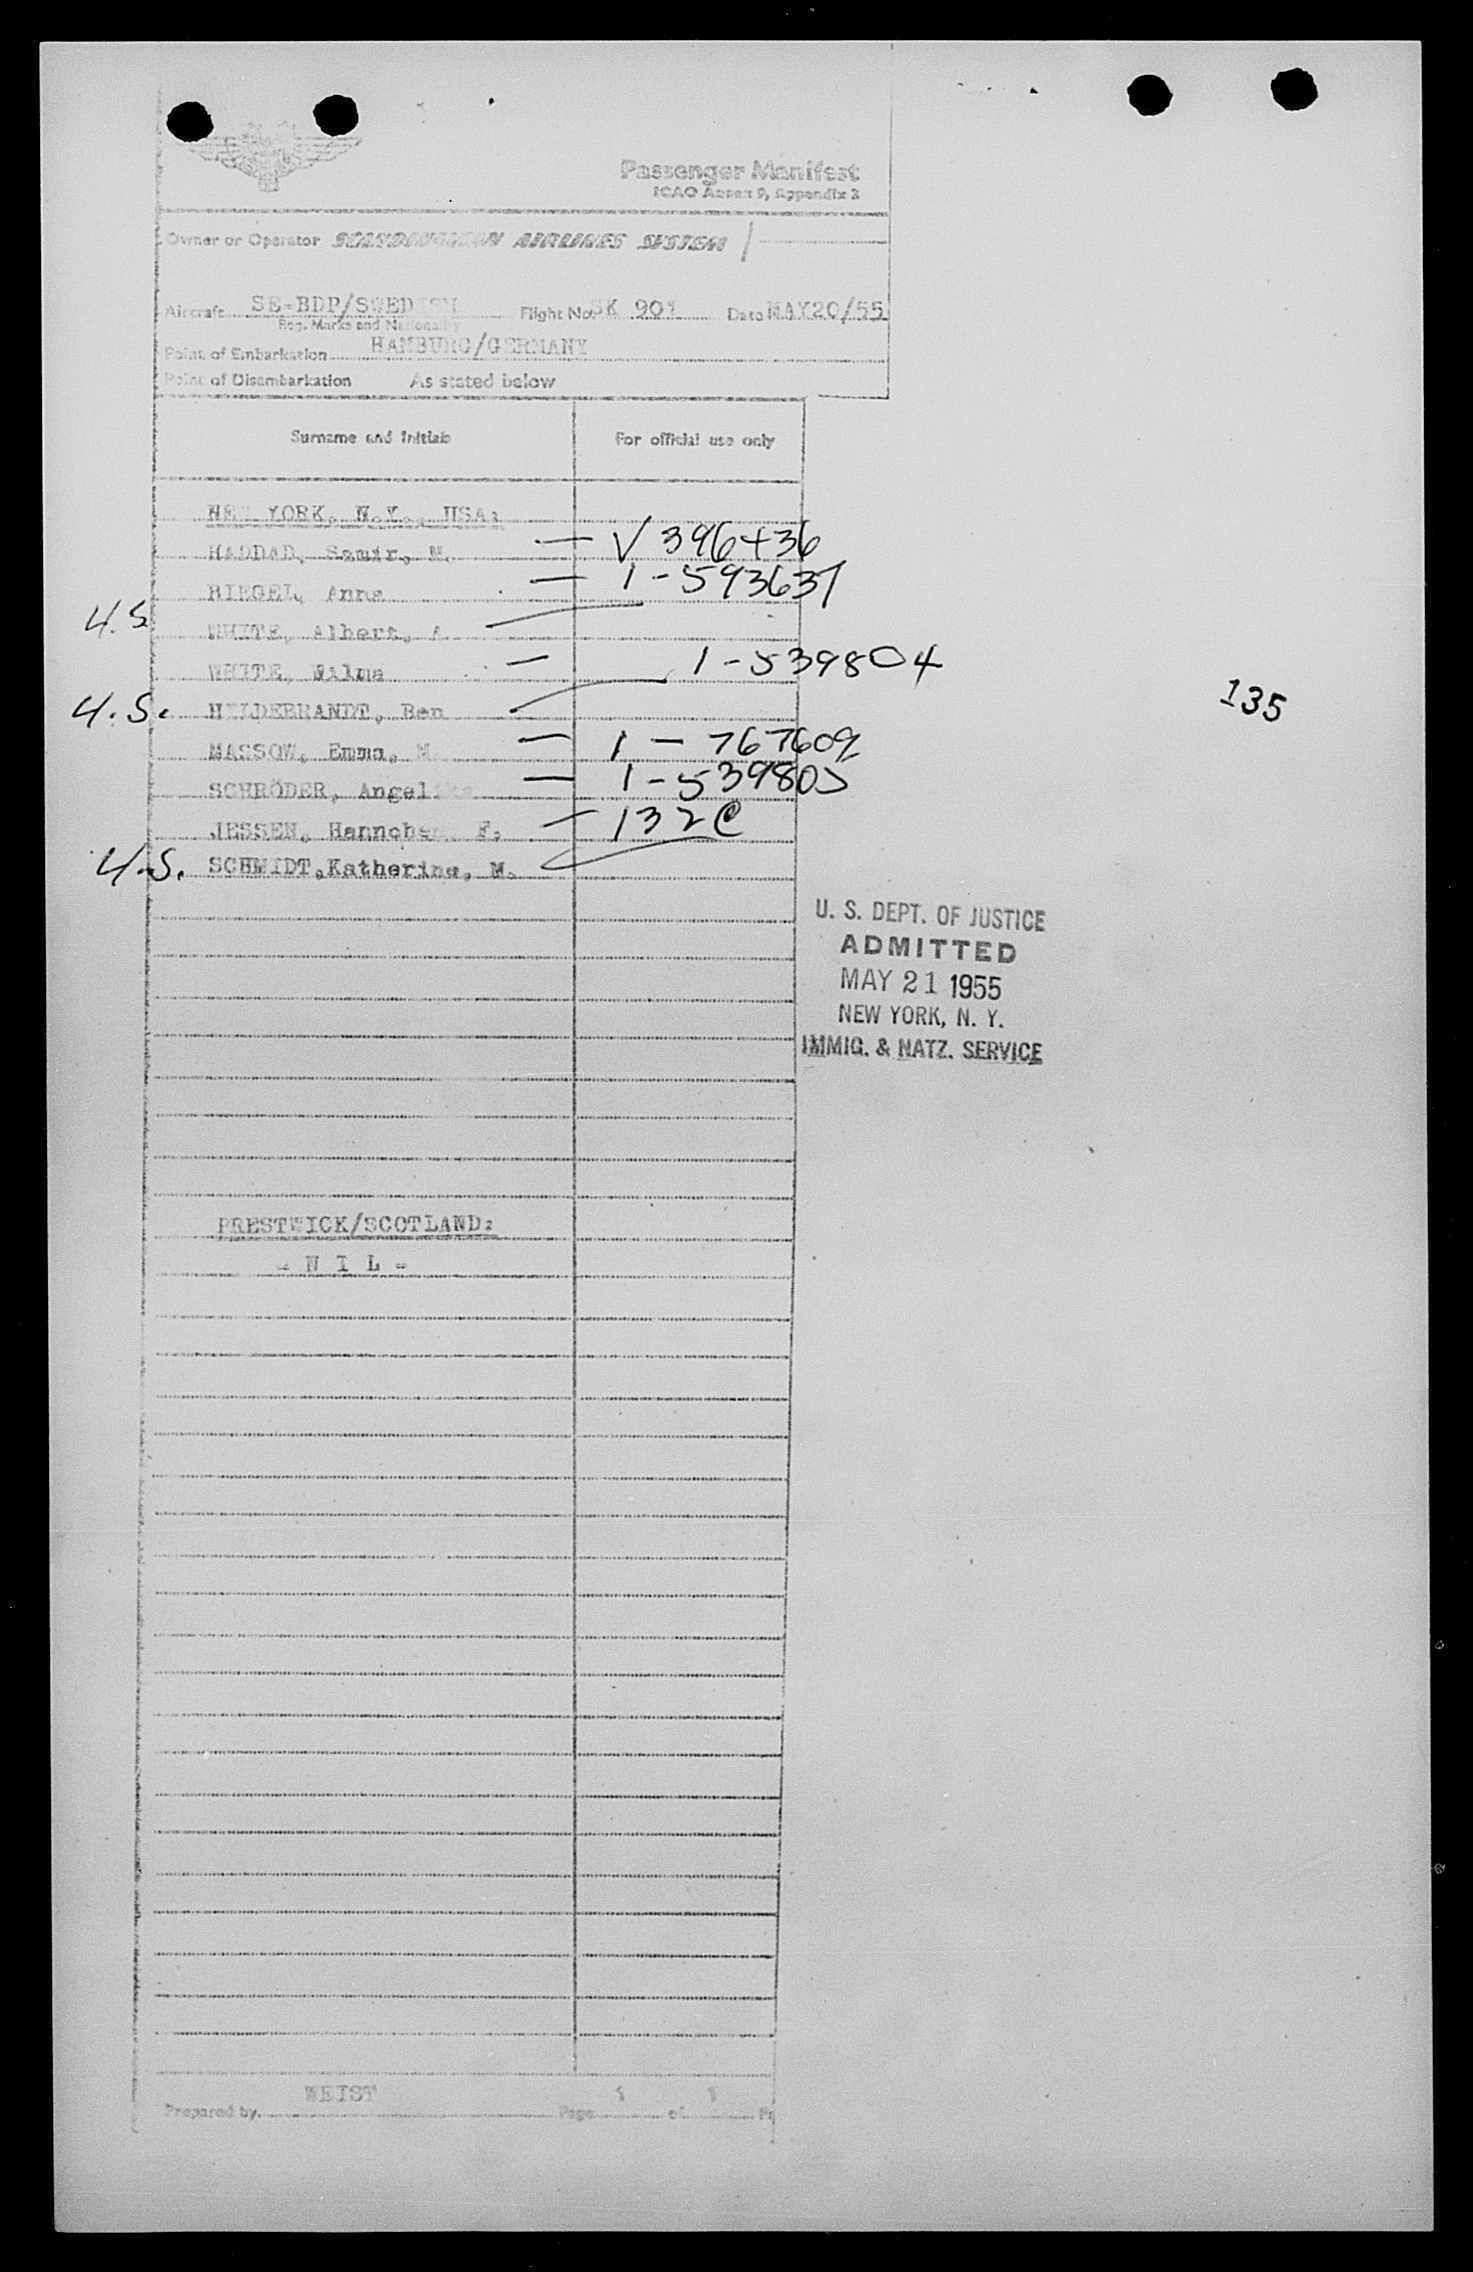 Passenger Manifest
ICAO Annex 9, Appendix 3
Owner or Operator SCANDINAVIAN AIRLINES SYSTEM
Aircraft SE-BDP/SWEDISH Flight No. SK 901 Date MAY20/55
Reg. Marks and Nationality
Point of Embarkation HAMBURG/GERMANY
Point of Disembarkation As stated below
Surname and Initials For official use only
NEW YORK, N.Y., USA:
HADDAD, Samir, M. — V 396436
RIEGEL, Anna — 1-593637
U.S. WHITE, Albert, A.
WHITE, Wilma — 1-539804
U.S. HILDEBRANDT, Ben
135
MASSOW, Emma, M — 1-767609
SCHRÖDER, Angelika — 1-539805
JESSEN, Hannchen F. — 132C
U.S. SCHMIDT,Katherina, M.
U. S. DEPT. OF JUSTICE
ADMITTED
MAY 21 1955
NEW YORK, N. Y.
IMMIG. & NATZ. SERVICE
PRESTWICK/SCOTLAND:
- N I L -
Prepared by WEIST Page 1 of 1